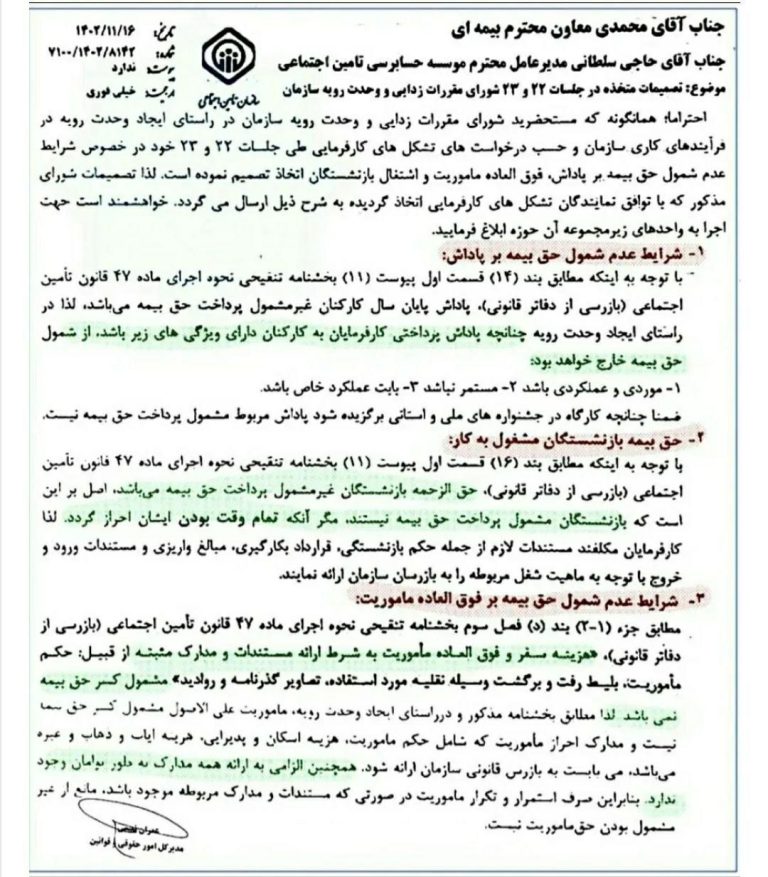 جناب آقای محمدی معاون محترم بیمه ای
جناب آقای حاجی سلطانی مدیرعامل محترم موسسه حسابرسی تامین اجتماعی
موضوع: تصمیمات متخذه در جلسات ۲۲ و ۲۳ شورای مقررات زدایی و وحدت رویه سازمان
تاریخ: ۱۴۰۲/۱۱/۱۶
شماره: ۷۱۰۰/۱۴۰۲/۸۱۴۲
پیوست: ندارد
خیلی فوری
سازمان تامین اجتماعی
احتراما؛ همانگونه که مستحضرید شورای مقررات زدایی و وحدت رویه سازمان در راستای ایجاد وحدت رویه در
فرآیندهای کاری سازمان و حسب درخواست های تشکل های کارفرمایی طی جلسات ۲۲ و ۲۳ خود در خصوص شرایط
عدم شمول حق بیمه بر پاداش، فوق العاده ماموریت و اشتغال بازنشستگان اتخاذ تصمیم نموده است. لذا تصمیمات شورای
مذکور که با توافق نمایندگان تشکل های کارفرمایی اتخاذ گردیده به شرح ذیل ارسال می گردد. خواهشمند است جهت
اجرا به واحدهای زیرمجموعه آن حوزه ابلاغ فرمایید.
۱- شرایط عدم شمول حق بیمه بر پاداش:
با توجه به اینکه مطابق بند (۱۴) قسمت اول پیوست (۱۱) بخشنامه تنقیحی نحوه اجرای ماده ۴۷ قانون تأمین
اجتماعی (بازرسی از دفاتر قانونی)، پاداش پایان سال کارکنان غیرمشمول پرداخت حق بیمه می‌باشد، لذا در
راستای ایجاد وحدت رویه چنانچه پاداش پرداختی کارفرمایان به کارکنان دارای ویژگی های زیر باشد، از شمول
حق بیمه خارج خواهد بود:
۱- موردی و عملکردی باشد ۲- مستمر نباشد ۳- بابت عملکرد خاص باشد.
ضمنا چنانچه کارگاه در جشنواره های ملی و استانی برگزیده شود پاداش مربوط مشمول پرداخت حق بیمه نیست.
۲- حق بیمه بازنشستگان مشغول به کار:
با توجه به اینکه مطابق بند (۱۶) قسمت اول پیوست (۱۱) بخشنامه تنقیحی نحوه اجرای ماده ۴۷ قانون تأمین
اجتماعی (بازرسی از دفاتر قانونی)، حق الزحمه بازنشستگان غیرمشمول پرداخت حق بیمه می‌باشد، اصل بر این
است که بازنشستگان مشمول پرداخت حق بیمه نیستند، مگر آنکه تمام وقت بودن ایشان احراز گردد. لذا
کارفرمایان مکلفند مستندات لازم از جمله حکم بازنشستگی، قرارداد بکارگیری، مبالغ واریزی و مستندات ورود و
خروج با توجه به ماهیت شغل مربوطه را به بازرسان سازمان ارائه نمایند.
۳- شرایط عدم شمول حق بیمه بر فوق العاده ماموریت:
مطابق جزء (۱-۲) بند (د) فصل سوم بخشنامه تنقیحی نحوه اجرای ماده ۴۷ قانون تأمین اجتماعی (بازرسی از
دفاتر قانونی)، «هزینه سفر و فوق العاده مأموریت به شرط ارائه مستندات و مدارک مثبته از قبیل: حکم
مأموریت، بلیط رفت و برگشت وسیله نقلیه مورد استفاده، تصاویر گذرنامه و روادید» مشمول کسر حق بیمه
نمی باشد. لذا مطابق بخشنامه مذکور و درراستای ایجاد وحدت رویه، ماموریت علی الاصول مشمول کسر حق بیمه
نیست و مدارک احراز مأموریت که شامل حکم ماموریت، هزینه اسکان و پذیرایی، هزینه ایاب و ذهاب و غیره
می‌باشد، می بایست به بازرس قانونی سازمان ارائه شود. همچنین الزامی به ارائه همه مدارک به طور توامان وجود
ندارد. بنابراین صرف استمرار و تکرار ماموریت در صورتی که مستندات و مدارک مربوطه موجود باشد، مانع از غیر
مشمول بودن حق‌ماموریت نیست.
عمران
مدیرکل امور حقوقی و قوانین